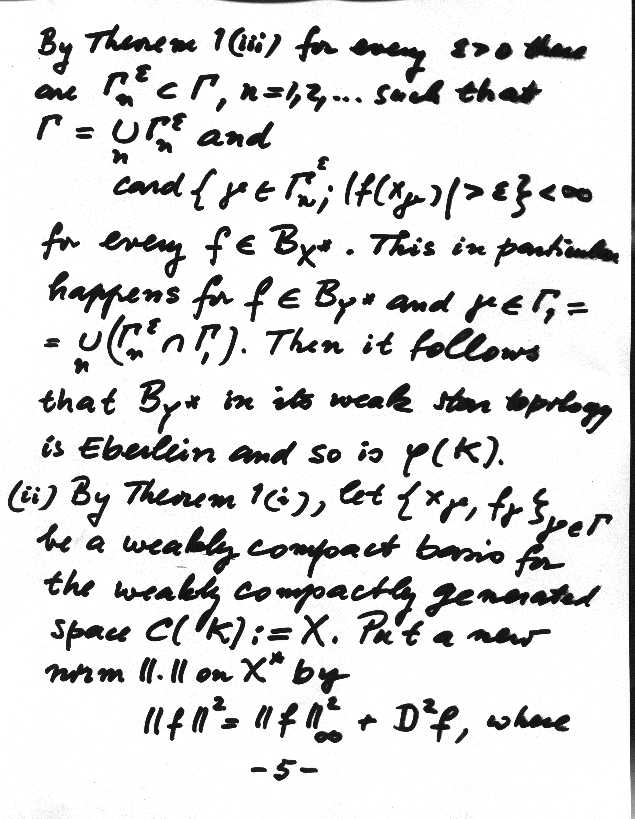 By Theorem 1(iii) for every ε>0 there
are Γₙ^ε ⊂ Γ, n=1,2,... such that
Γ = ∪ₙ Γₙ^ε and
card { γ ∈ Γₙ^ε; |f(x_γ)| > ε} < ∞
for every f ∈ B_X*. This in particular
happens for f ∈ B_Y* and γ ∈ Γ₁ =
= ∪ₙ (Γₙ^ε ∩ Γ₁). Then it follows
that B_Y* in its weak star topology
is Eberlein and so is φ(K).
(ii) By Theorem 1(i), let {x_γ, f_γ}_γ∈Γ
be a weakly compact basis for
the weakly compactly generated
space C(K) := X. Put a new
norm ‖.‖ on X* by
‖f‖² = ‖f‖²_∞ + D²f, where
-5-